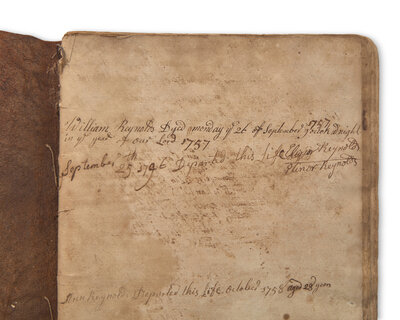 William Reynolds Dyed a monday ye 26 of September 1757 at night
in ye year of our Lord 1757
September th 25 1796 Departed this life Elinor Reynolds
Elinor Reynolds
Ann Reynolds Departed this Life October 1758 aged 28 years